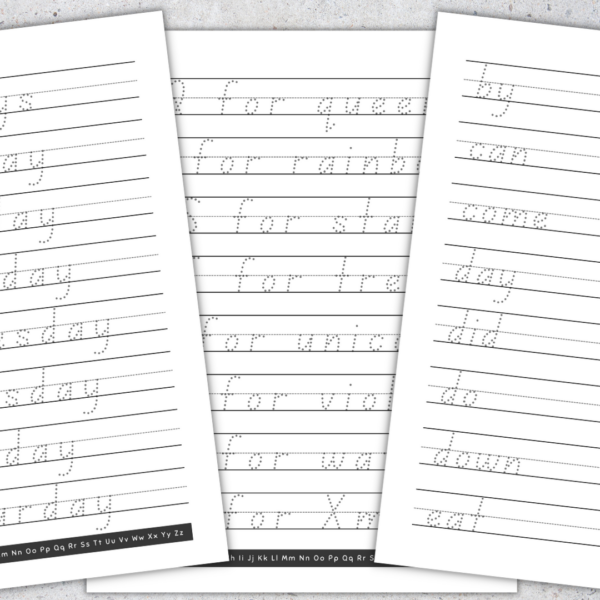 ys
ay
ay
day
sday
sday
day
rday
Nn Oo Pp Qq Rr Ss Tt Uu Vv Ww Xx Yy Zz
Q for quee
for rainb
S for sta
for tra
for unic
for viol
for wa
for Xm
h Ii Jj Kk Ll Mm Nn Oo Pp Qq Rr S
by
can
come
day
did
do
down
eat